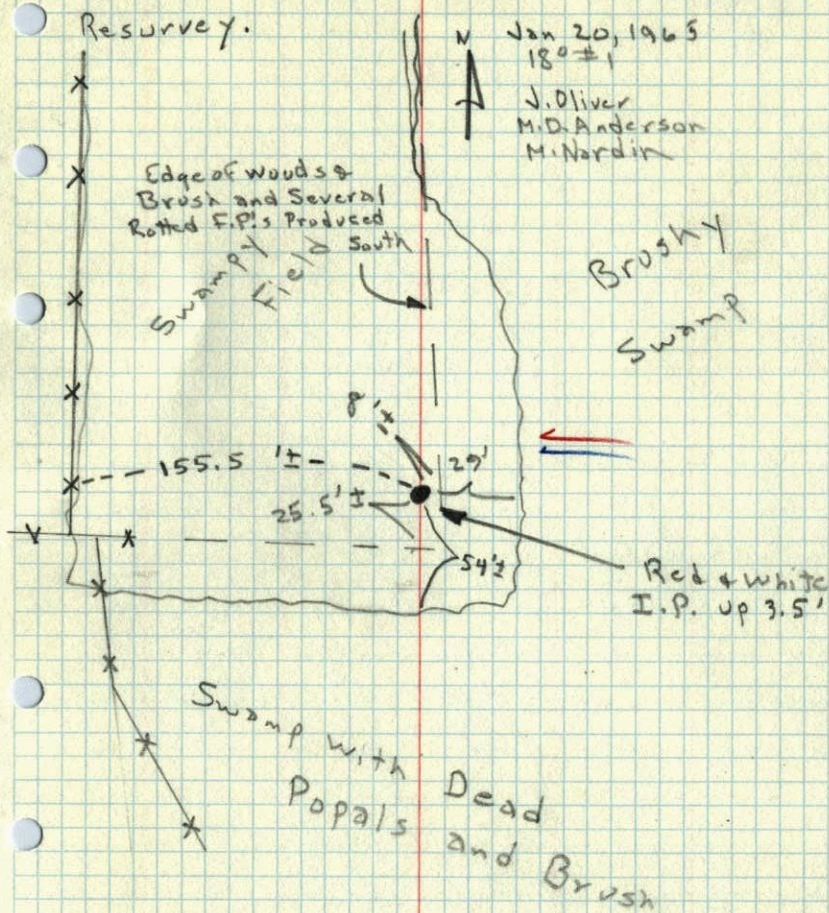 Resurvey.
N
Jan 20, 1965
18° ± 1
J. Oliver
M.D. Anderson
M. Nardin
Edge of woods &
Brush and Several
Rotted F.P.'s Produced
South
Swampy
Field
Brushy
Swamp
8'±
155.5'±
29'
25.5'±
54'±
Red & White
I.P. up 3.5'
Swamp with Dead
Popals and Brush